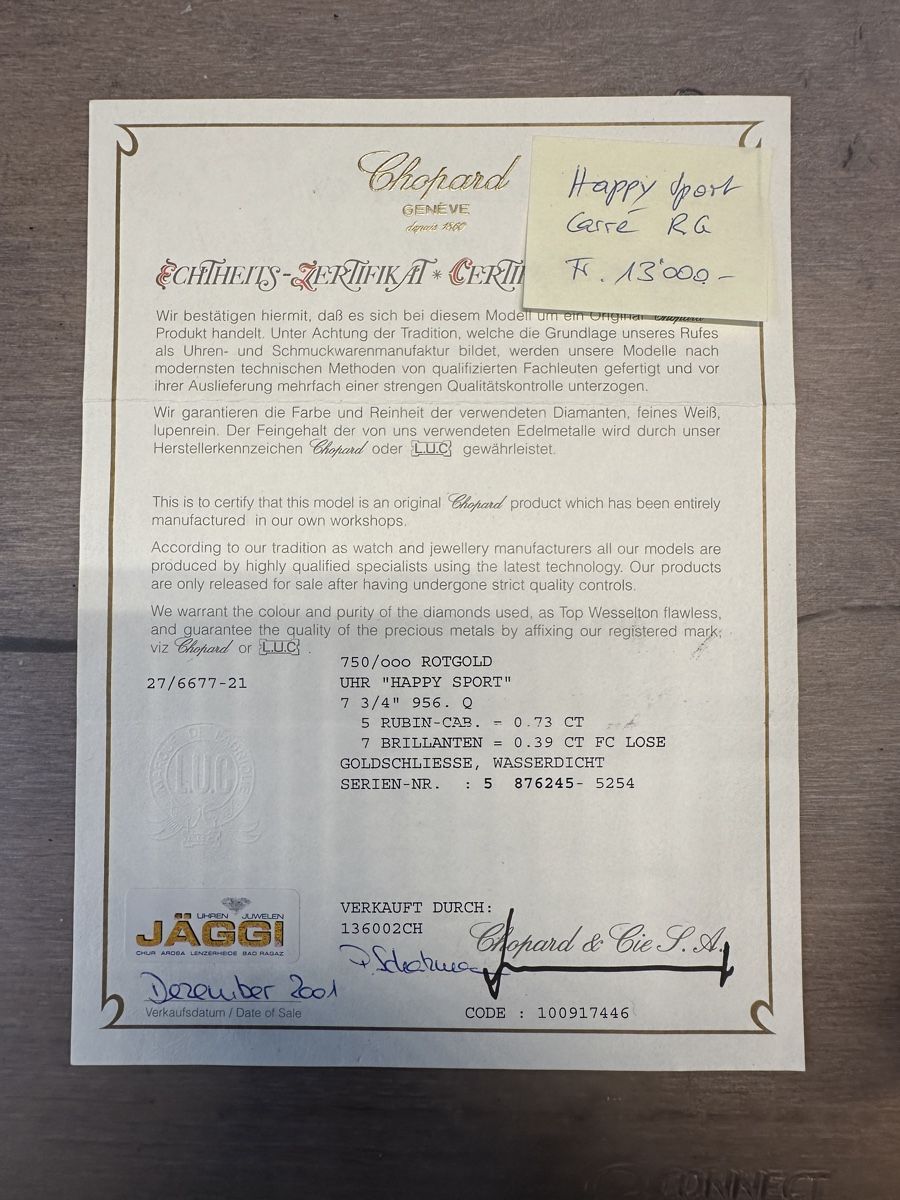 Chopard
GENÈVE
depuis 1860
Happy Sport
Carré RG
Fr. 13'000.-
ECHTHEITS-ZERTIFIKAT * CERTIF
Wir bestätigen hiermit, daß es sich bei diesem Modell um ein Original Chopard
Produkt handelt. Unter Achtung der Tradition, welche die Grundlage unseres Rufes
als Uhren- und Schmuckwarenmanufaktur bildet, werden unsere Modelle nach
modernsten technischen Methoden von qualifizierten Fachleuten gefertigt und vor
ihrer Auslieferung mehrfach einer strengen Qualitätskontrolle unterzogen.
Wir garantieren die Farbe und Reinheit der verwendeten Diamanten, feines Weiß,
lupenrein. Der Feingehalt der von uns verwendeten Edelmetalle wird durch unser
Herstellerkennzeichen Chopard oder L.U.C gewährleistet.
This is to certify that this model is an original Chopard product which has been entirely
manufactured in our own workshops.
According to our tradition as watch and jewellery manufacturers all our models are
produced by highly qualified specialists using the latest technology. Our products
are only released for sale after having undergone strict quality controls.
We warrant the colour and purity of the diamonds used, as Top Wesselton flawless,
and guarantee the quality of the precious metals by affixing our registered mark,
viz Chopard or L.U.C .
750/ooo ROTGOLD
27/6677-21 UHR "HAPPY SPORT"
7 3/4" 956. Q
5 RUBIN-CAB. = 0.73 CT
7 BRILLANTEN = 0.39 CT FC LOSE
GOLDSCHLIESSE, WASSERDICHT
SERIEN-NR. : 5 876245- 5254
L.U.C
UHREN JUWELEN
JÄGGI
CHUR AROSA LENZERHEIDE BAD RAGAZ
VERKAUFT DURCH:
136002CH
Chopard & Cie S.A.
Dezember 2001
Verkaufsdatum / Date of Sale
CODE : 100917446
CONNECT